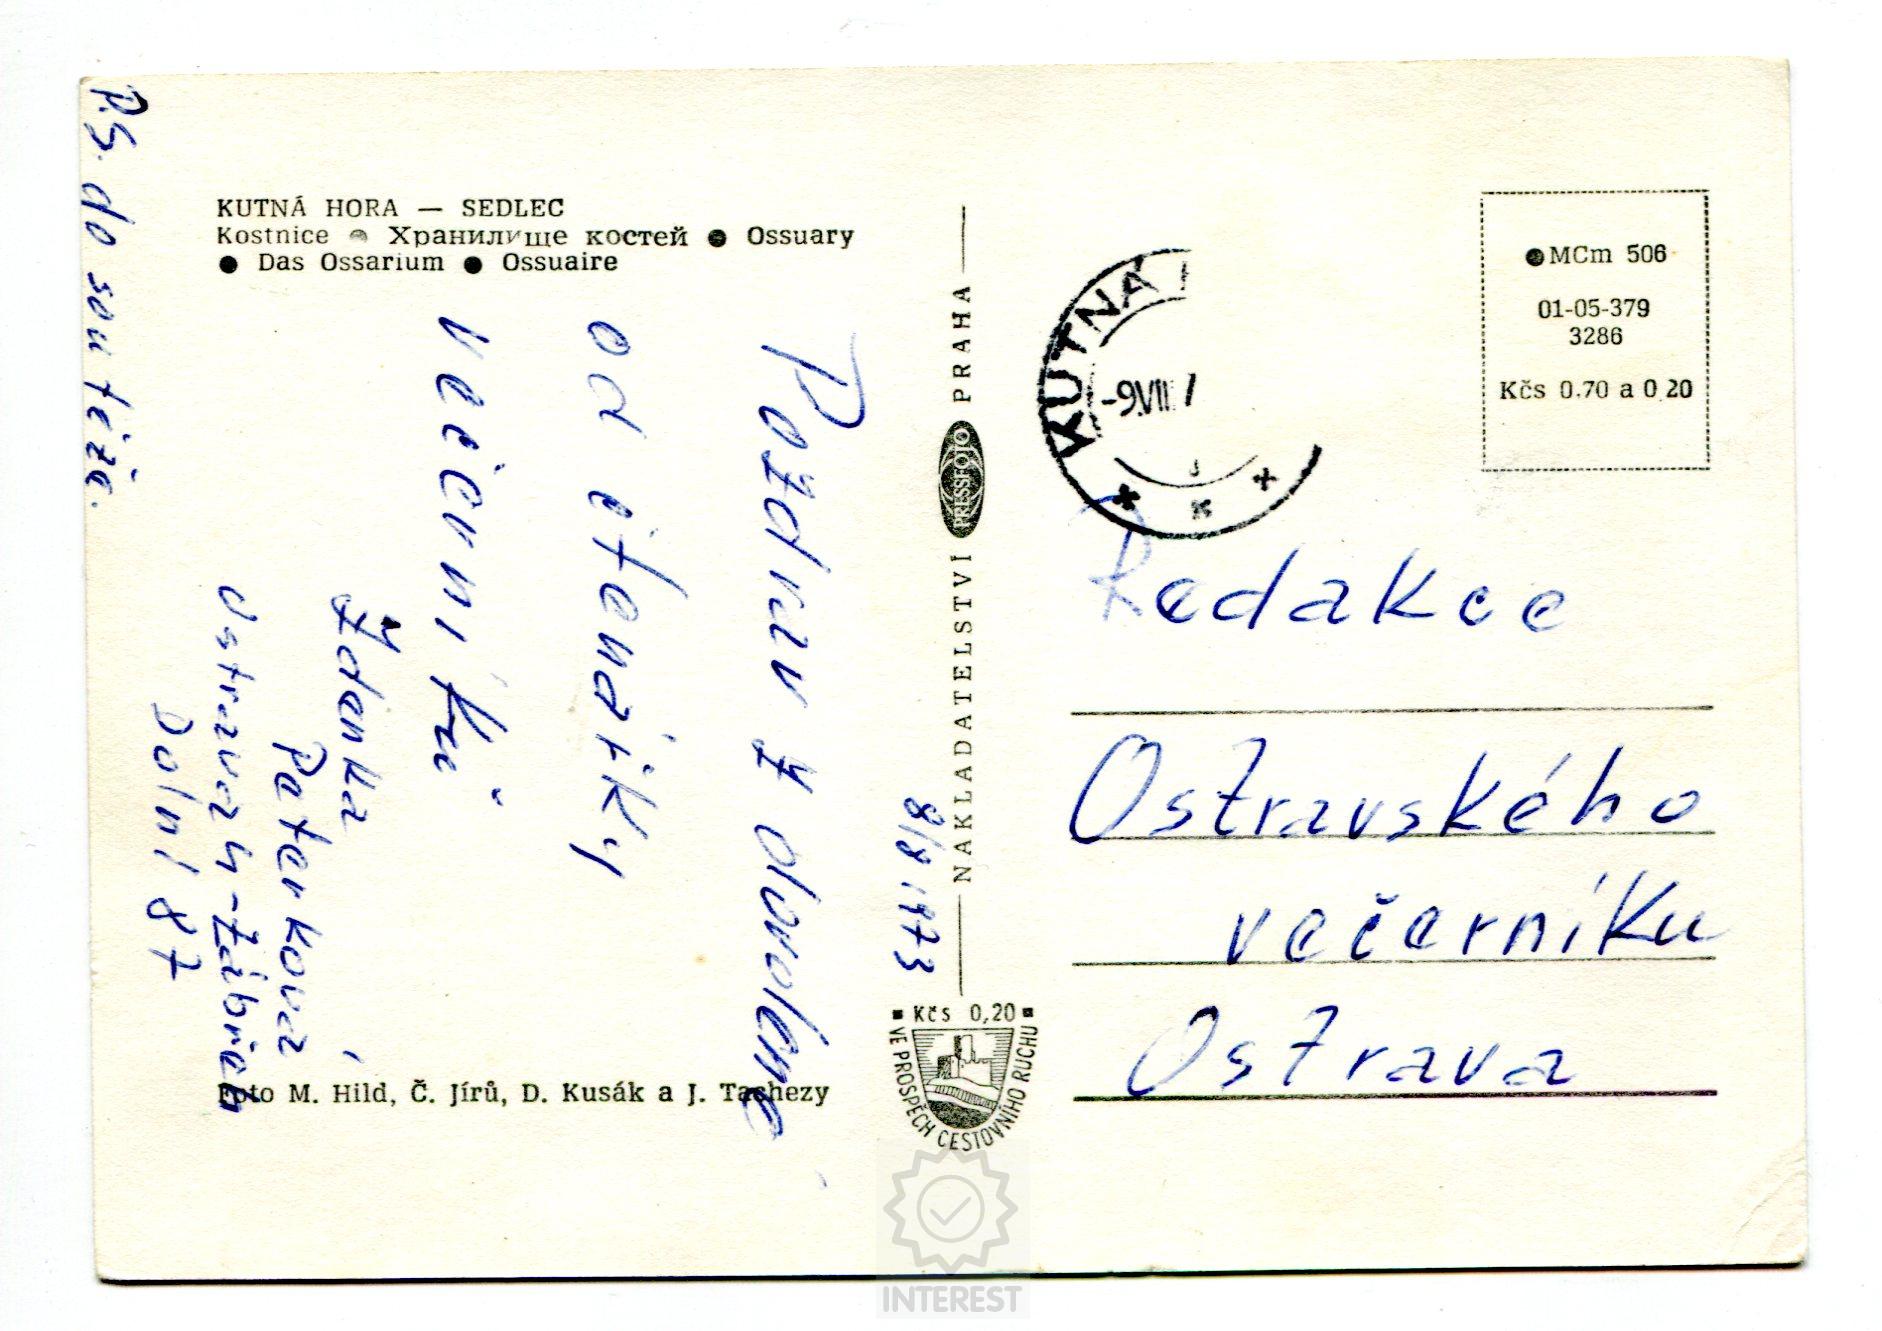 KUTNÁ HORA — SEDLEC
Kostnice ● Хранилище костей ● Ossuary
● Das Ossarium ● Ossuaire
8/8 1973
Pozdrav z dovolené
od čtenářky
večerníků
Zdanka
Paterková
Ostrava 4-Zábřeh
Dolní 87
P.S. do soutěže.
Foto M. Hild, Č. Jírů, D. Kusák a J. Tachezy
NAKLADATELSTVÍ PRESSFOTO PRAHA
Kčs 0,20
VE PROSPĚCH CESTOVNÍHO RUCHU
KUTNÁ
-9.VIII 7
●MCm 506
01-05-379
3286
Kčs 0.70 a 0.20
Redakce
Ostravského
večerníku
Ostrava
INTEREST